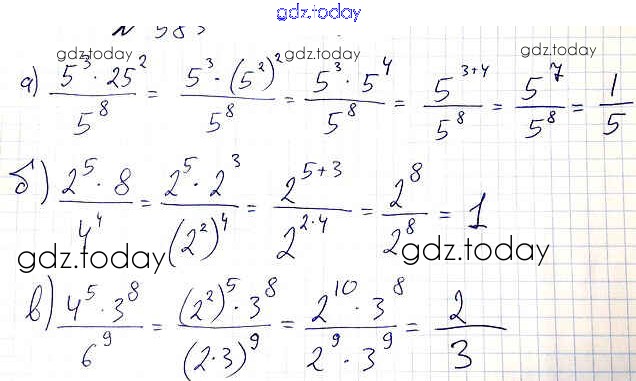 gdz.today
N 583
gdz.today gdz.today
а) (5³ · 25²)/5⁸ = (5³ · (5²)²)/5⁸ = (5³ · 5⁴)/5⁸ = 5³⁺⁴/5⁸ = 5⁷/5⁸ = 1/5
б) (2⁵ · 8)/4⁴ = (2⁵ · 2³)/(2²)⁴ = 2⁵⁺³/2²·⁴ = 2⁸/2⁸ = 1
gdz.today gdz.today
в) (4⁵ · 3⁸)/6⁹ = ((2²)⁵ · 3⁸)/(2·3)⁹ = (2¹⁰ · 3⁸)/(2⁹ · 3⁹) = 2/3